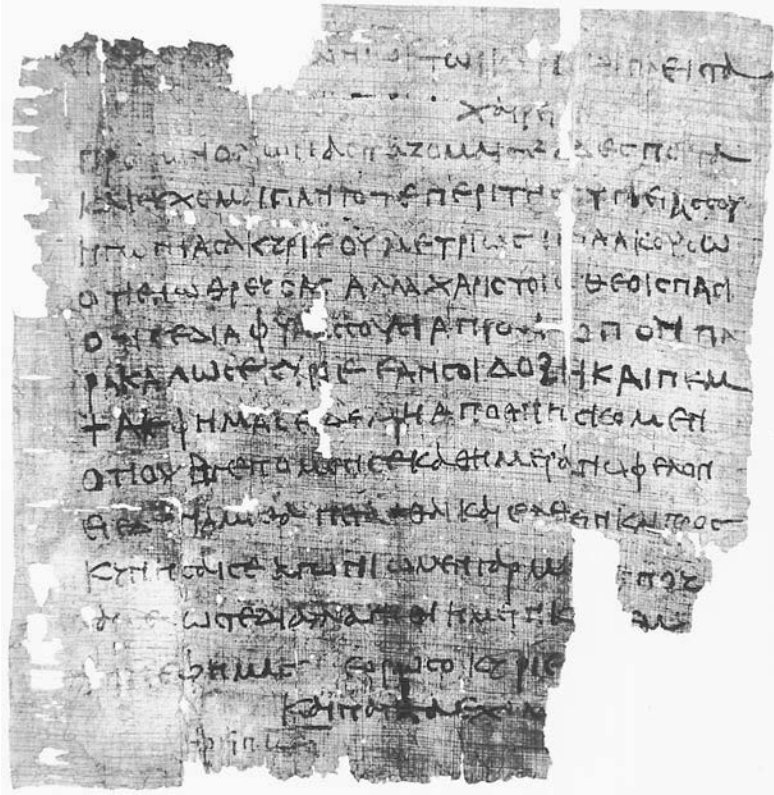 τωι κυριωι πλειστα
χαιρειν
ασπαζομαι σε δεσποτα
και ευχομαι παντοτε περι της υγιειας σου
ηγωνιασα κυριε ου μετριως ινα ακουσω
οτι ενωθρευσας αλλα χαρις τοις θεοις πασι
οτι σε διαφυλασσουσι απροσκοπον πα
ρακαλω σε κυριε εαν σοι δοξῃ και πεμ
ψαι εφ ημας ει δε μη αποθνησκομεν
οτι ου βλεπομεν σε καθ ημεραν ωφελον
ει εδυναμεθα πετασθαι και ελθειν και προσ
κυνησαι σε αγωνιωμεν γαρ μη
ωστε διαλλαγηθι ημειν
εφ ημας ερρωσο κυριε
και παντα εχομεν